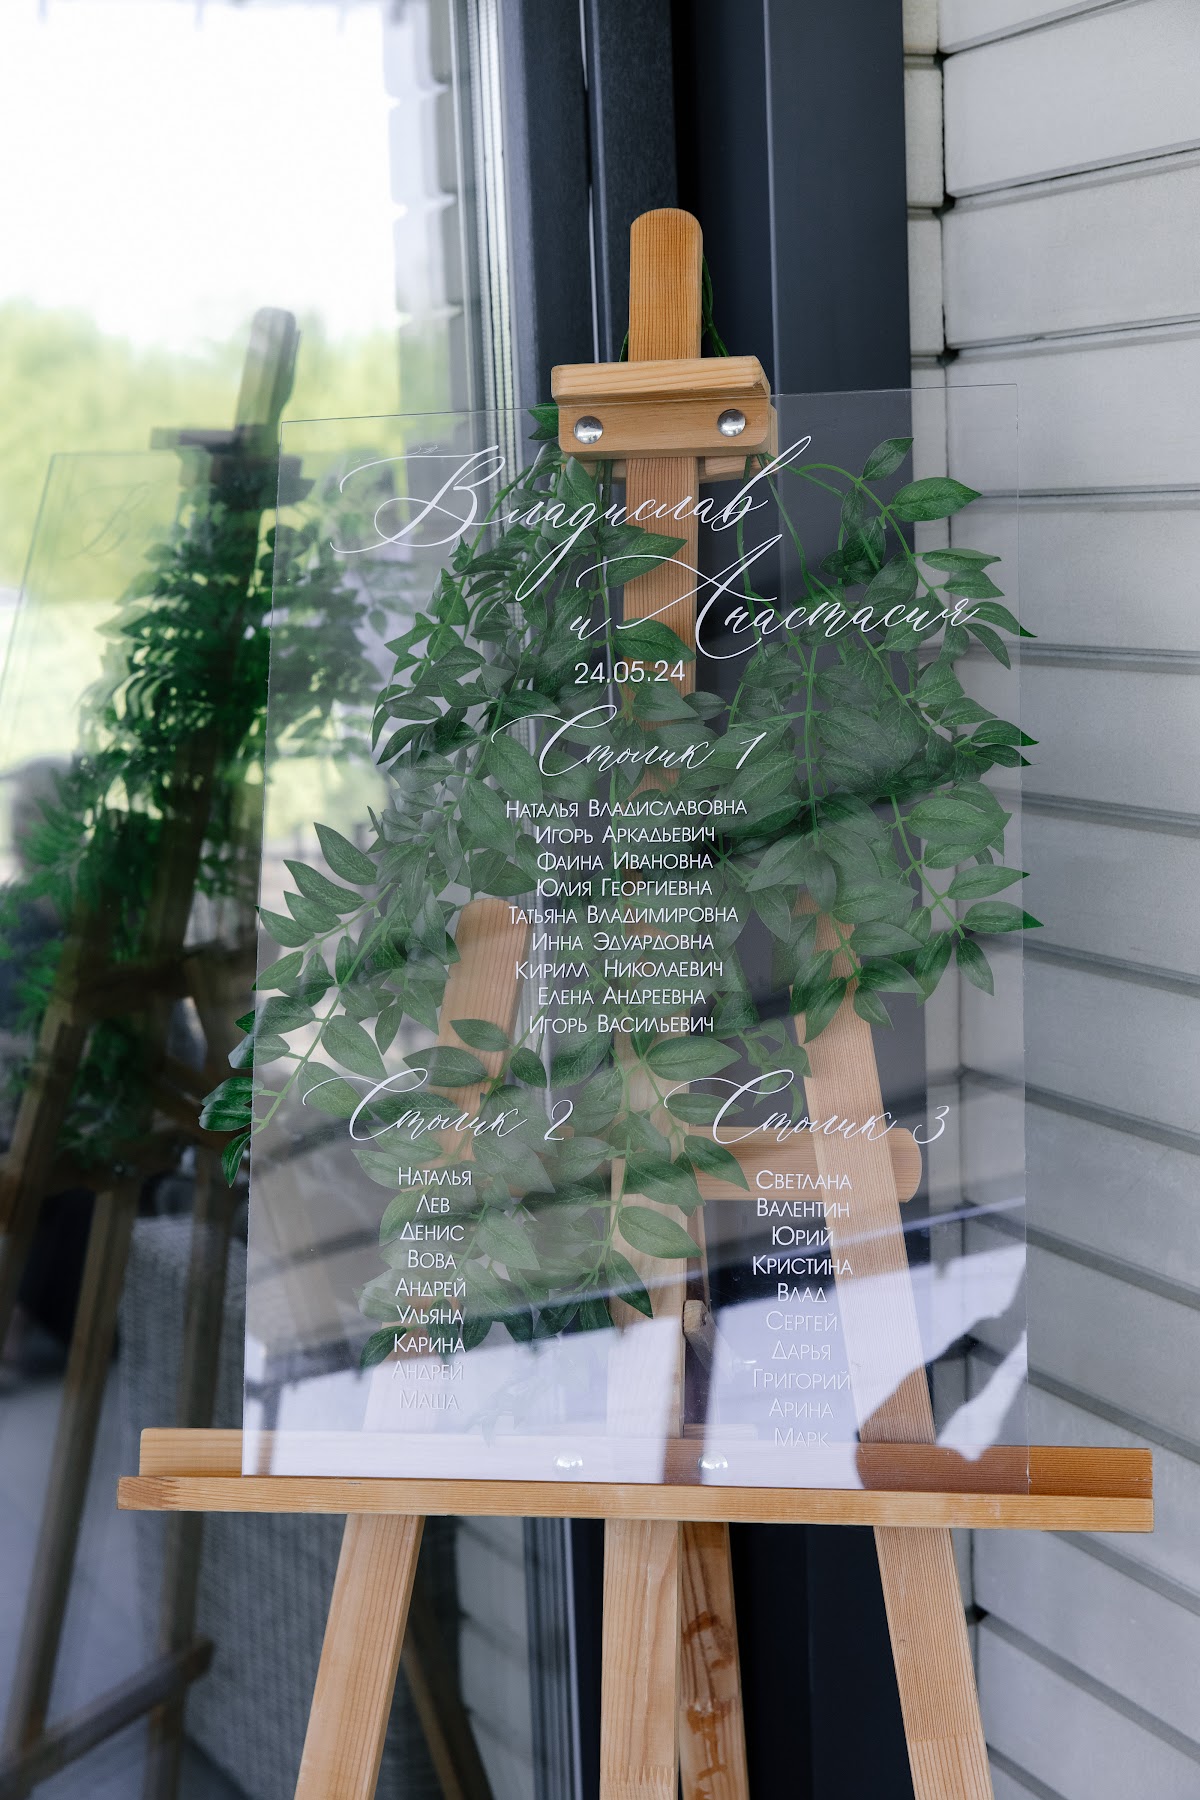 Владислав
и Анастасия
24.05.24
Столик 1
Наталья Владиславовна
Игорь Аркадьевич
Фаина Ивановна
Юлия Георгиевна
Татьяна Владимировна
Инна Эдуардовна
Кирилл Николаевич
Елена Андреевна
Игорь Васильевич
Столик 2
Наталья
Лев
Денис
Вова
Андрей
Ульяна
Карина
Андрей
Маша
Столик 3
Светлана
Валентин
Юрий
Кристина
Влад
Сергей
Дарья
Григорий
Арина
Марк